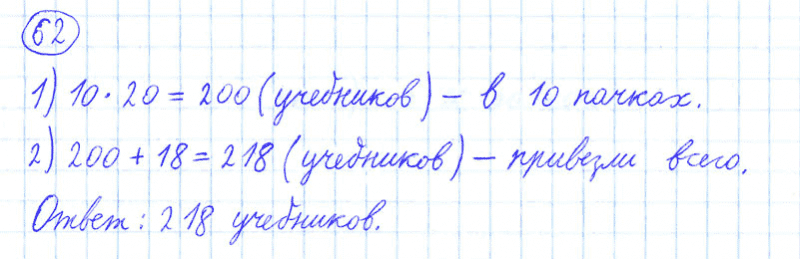 62
1) 10 · 20 = 200 (учебников) – в 10 пачках.
2) 200 + 18 = 218 (учебников) – привезли всего.
Ответ: 218 учебников.